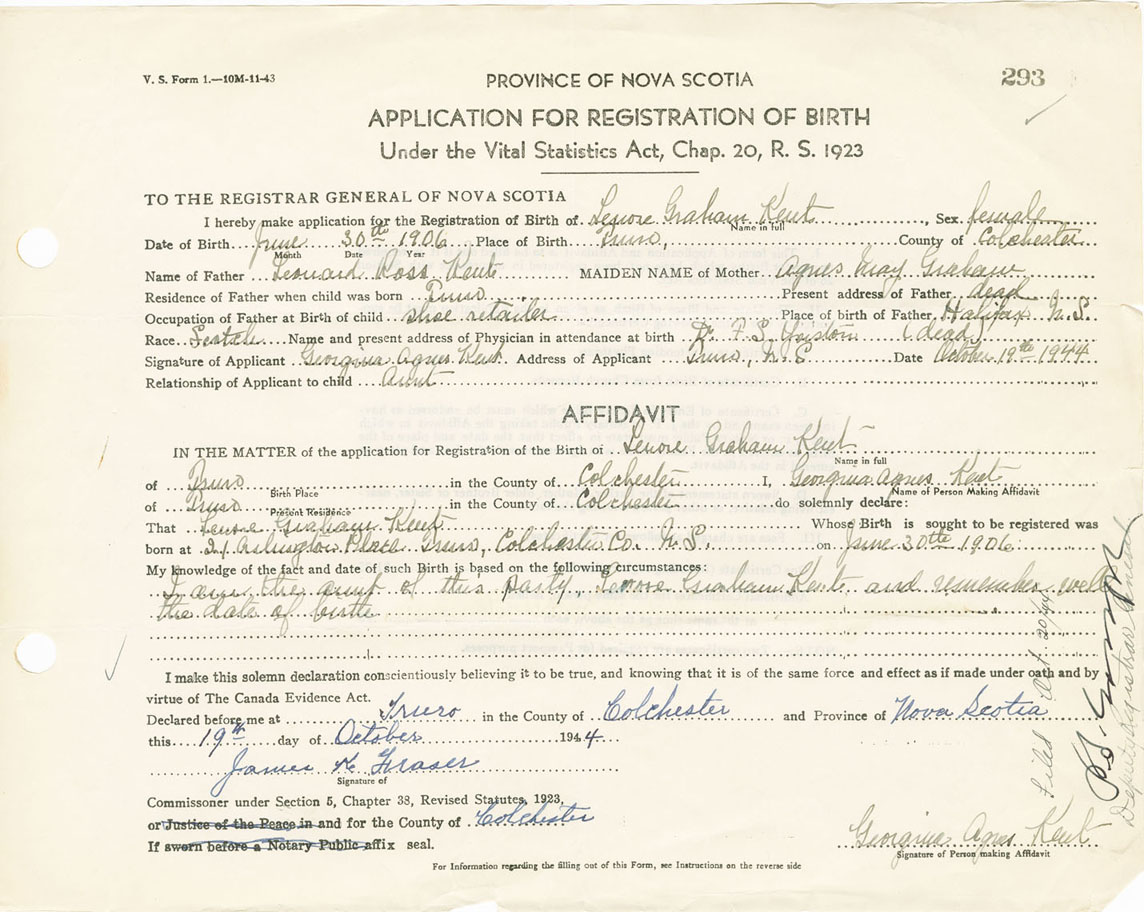 V. S. Form 1.—10M-11-43
PROVINCE OF NOVA SCOTIA
293
APPLICATION FOR REGISTRATION OF BIRTH
Under the Vital Statistics Act, Chap. 20, R. S. 1923
TO THE REGISTRAR GENERAL OF NOVA SCOTIA
I hereby make application for the Registration of Birth of Lenore Graham Kent, Sex female
Name in full
Date of Birth June 30th 1906 Place of Birth Truro, County of Colchester
Month Date Year
Name of Father Leonard Ross Kent MAIDEN NAME of Mother Agnes May Graham
Residence of Father when child was born Truro Present address of Father dead
Occupation of Father at Birth of child shoe retailer Place of birth of Father Halifax N.S.
Race Name and present address of Physician in attendance at birth Dr. F. S. (dead)
Signature of Applicant Georgina Agnes Kent Address of Applicant Truro, N.S Date October 19th 1944
Relationship of Applicant to child Aunt
AFFIDAVIT
IN THE MATTER of the application for Registration of the Birth of Lenore Graham Kent
Name in full
of Truro in the County of Colchester I, Georgina Agnes Kent
Birth Place Name of Person Making Affidavit
of Truro in the County of Colchester do solemnly declare:
Present Residence
That Lenore Graham Kent Whose Birth is sought to be registered was
born at 21 Arlington Place Truro, Colchester Co. N.S. on June 30th 1906
My knowledge of the fact and date of such Birth is based on the following circumstances:
I am the aunt of this party, Lenore Graham Kent and remember well
the date of birth
I make this solemn declaration conscientiously believing it to be true, and knowing that it is of the same force and effect as if made under oath and by
virtue of The Canada Evidence Act.
Declared before me at Truro in the County of Colchester and Province of Nova Scotia
this 19th day of October 1944
James K Fraser
Signature of
Commissoner under Section 5, Chapter 38, Revised Statutes, 1923,
or Justice of the Peace in and for the County of Colchester
If sworn before a Notary Public affix seal.
Georgina Agnes Kent
Signature of Person making Affidavit
For Information regarding the filling out of this Form, see Instructions on the reverse side
Filed Oct. 20/44
Deputy Registrar General